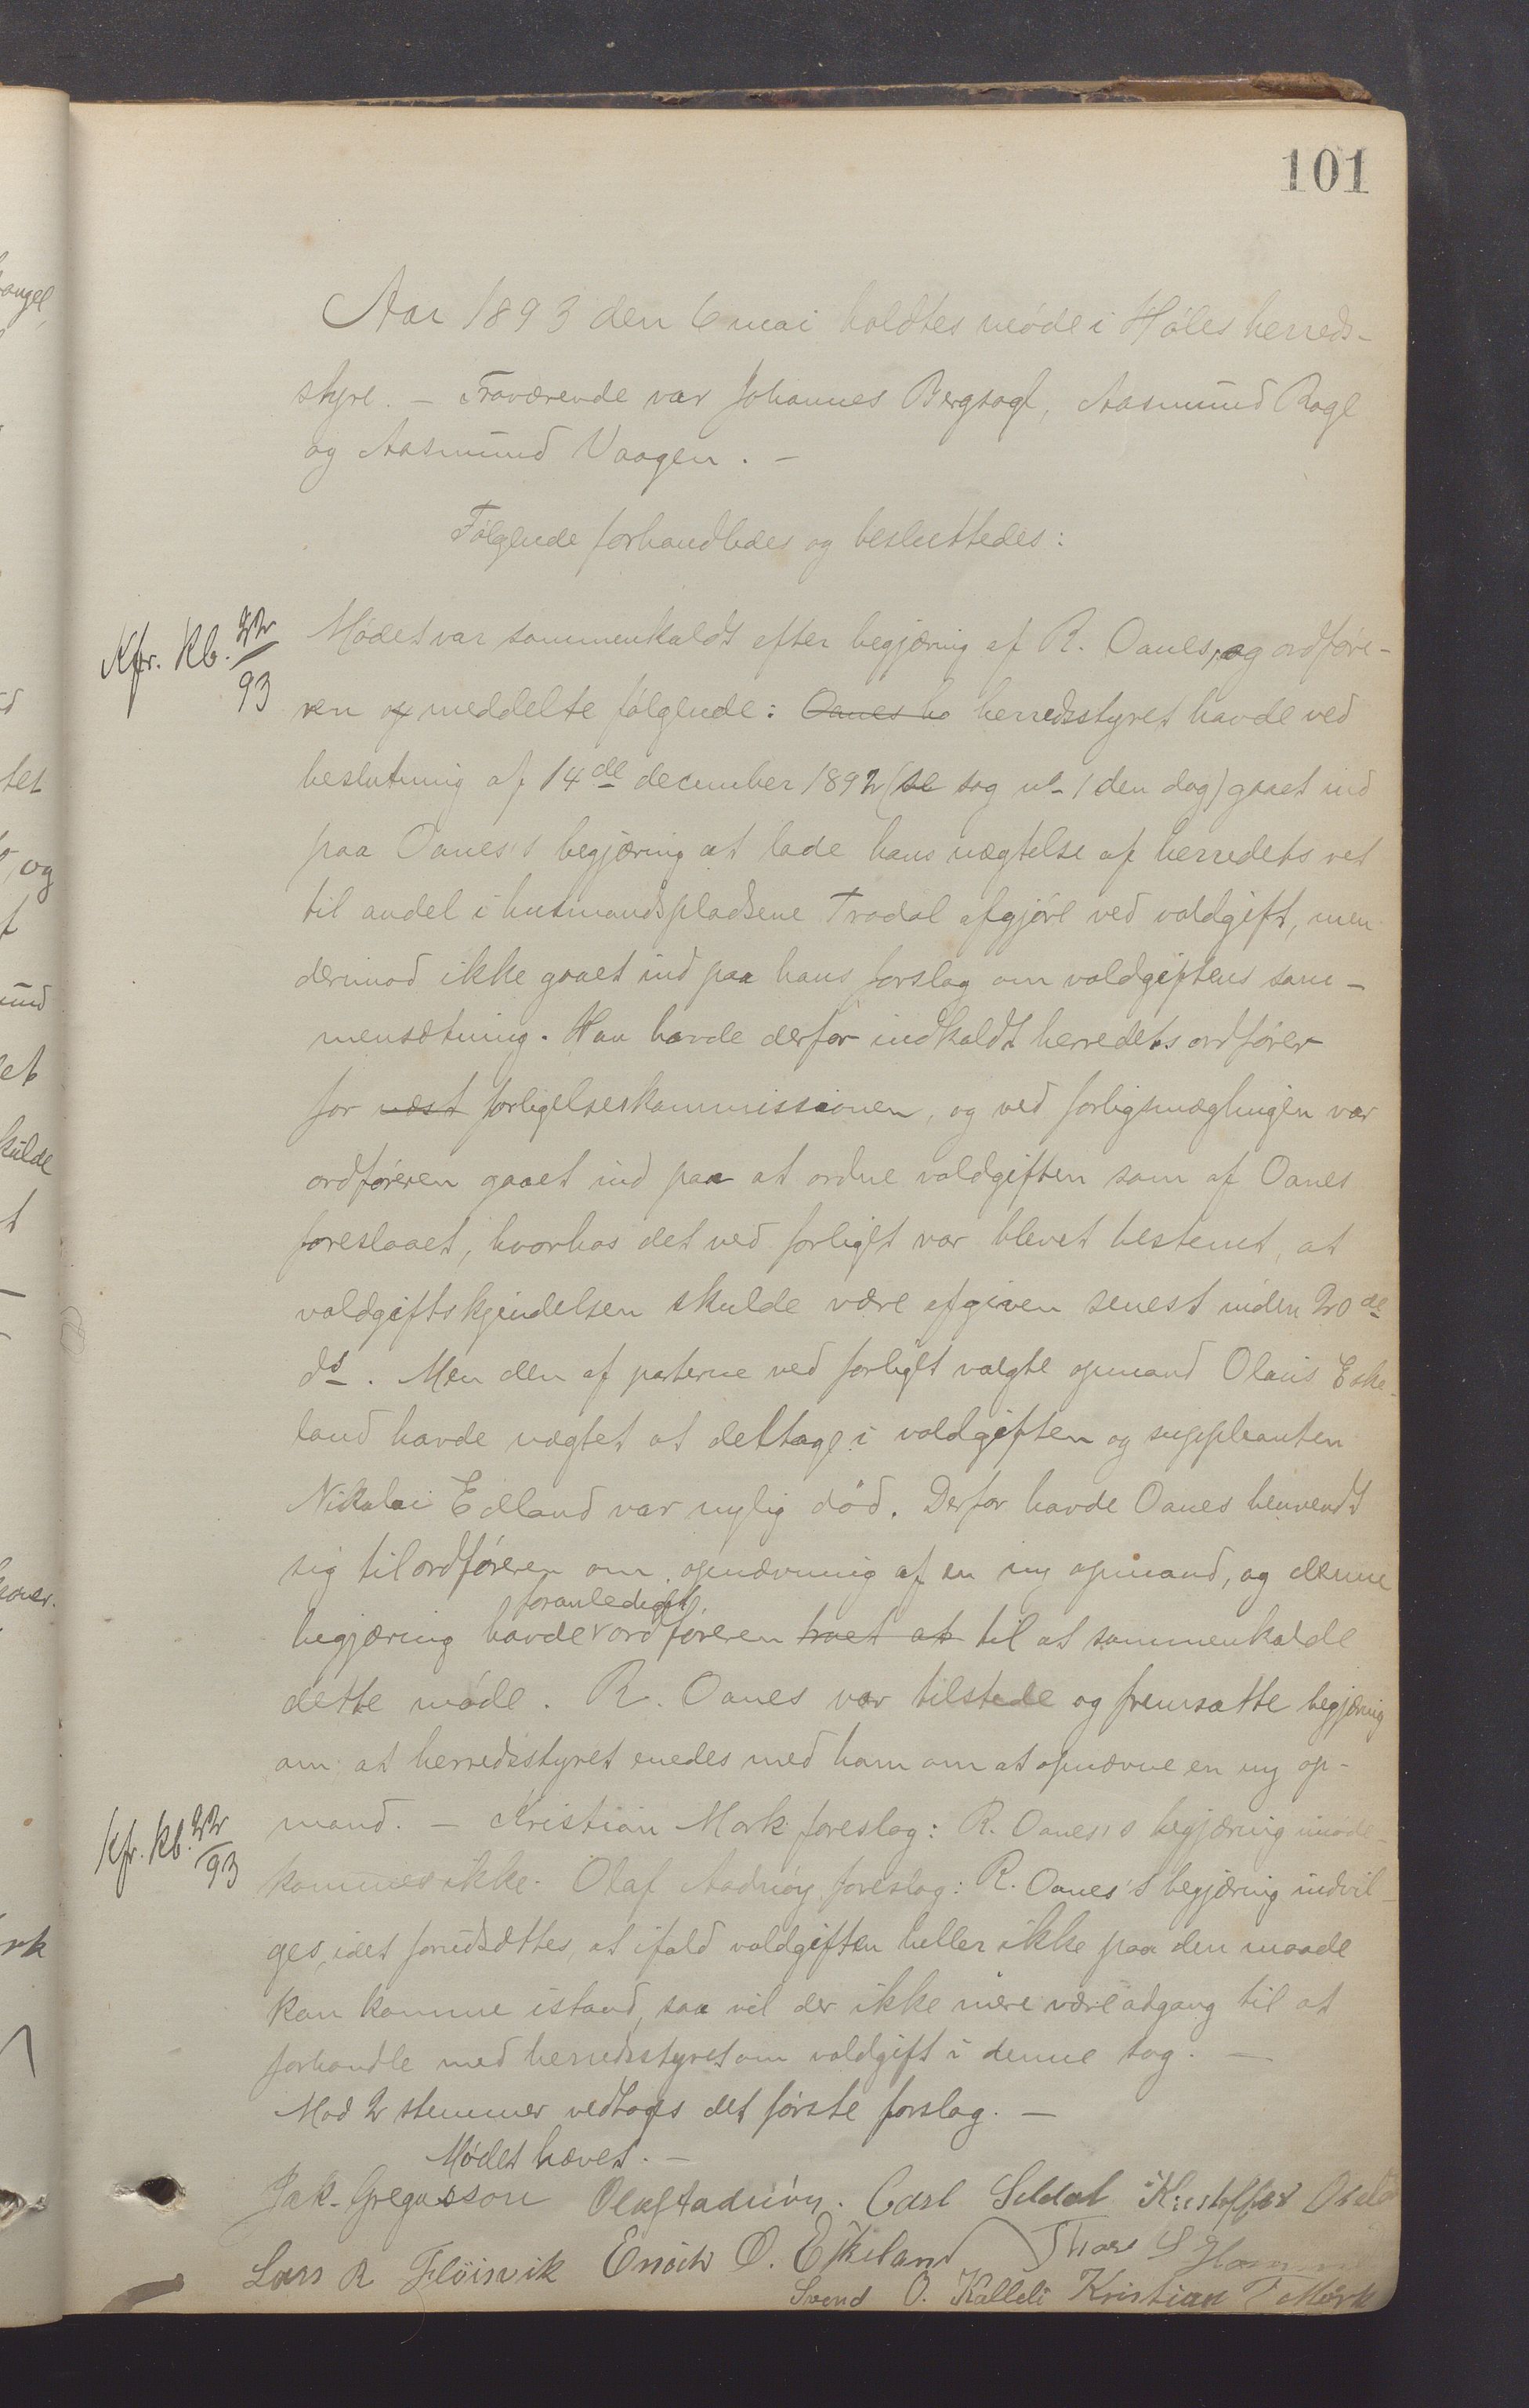 101
Aar 1893 den 6 mai holdtes møde i Høles herreds-
styre. - Fraværende var Johannes Bergsagl, Aasmund Rage
og Aasmund Vaagen. -
Følgende forhandledes og besluttedes:
Kfr. Kb. 93
Mødet var sammenkaldt efter begjæring af R. Oanes, og ordføre-
ren og meddelte følgende: Oanes ha herredsstyret havde ved
beslutning af 14de december 1892 (se sag no 1 den dag) gaaet ind
paa Oanes's begjæring at lade hans nægtelse af herredets ret
til andel i husmandspladsene Tradal afgjøre ved voldgift, men
derimod ikke gaaet ind paa hans forslag om voldgiftens sam-
mensætning. Han havde derfor indkaldt herredets ordfører
for næst forligelseskommissionen, og ved forligsmæglingen var
ordføreren gaaet ind paa at ordne voldgiften som af Oanes
foreslaaet, hvorhos det ved forliget var blevet bestemt, at
voldgiftskjendelsen skulde være afgiven senest inden 20de
ds. Men den af parterne ved forliget valgte opmand Olaus Eske-
land havde nægtet at deltage i voldgiften og suppleanten
Nikolai Edland var nylig død. Derfor havde Oanes henvendt
sig til ordføreren om opnævning af en ny opmand, og denne
foranlediget
begjæring havde ordføreren troet at til at sammenkalde
dette møde. R. Oanes var tilstede og fremsatte begjæring
om at herredsstyret enedes med ham om at opnævne en ny op-
Kfr. Kb. 93
mand. - Kristian Mork foreslog: R. Oanes's begjæring imøde-
kommes ikke. Olaf Aadnøy foreslog: R. Oanes's begjæring indvil-
ges, idet forudsættes, at ifald voldgiften heller ikke paa den maade
kan komme istand, saa vil der ikke mere være adgang til at
forhandle med herredsstyret om voldgift i denne sag. -
Mod 2 stemmer vedtoges det første forslag. -
Mødet hævet. -
Jak. Gregusson Olaf Aadnøy. Carl Seldal Kristoffer
Lars R Fløisvik Enoch O. Eskeland Thore S
Svend O. Kalleli Kristian T Mørk